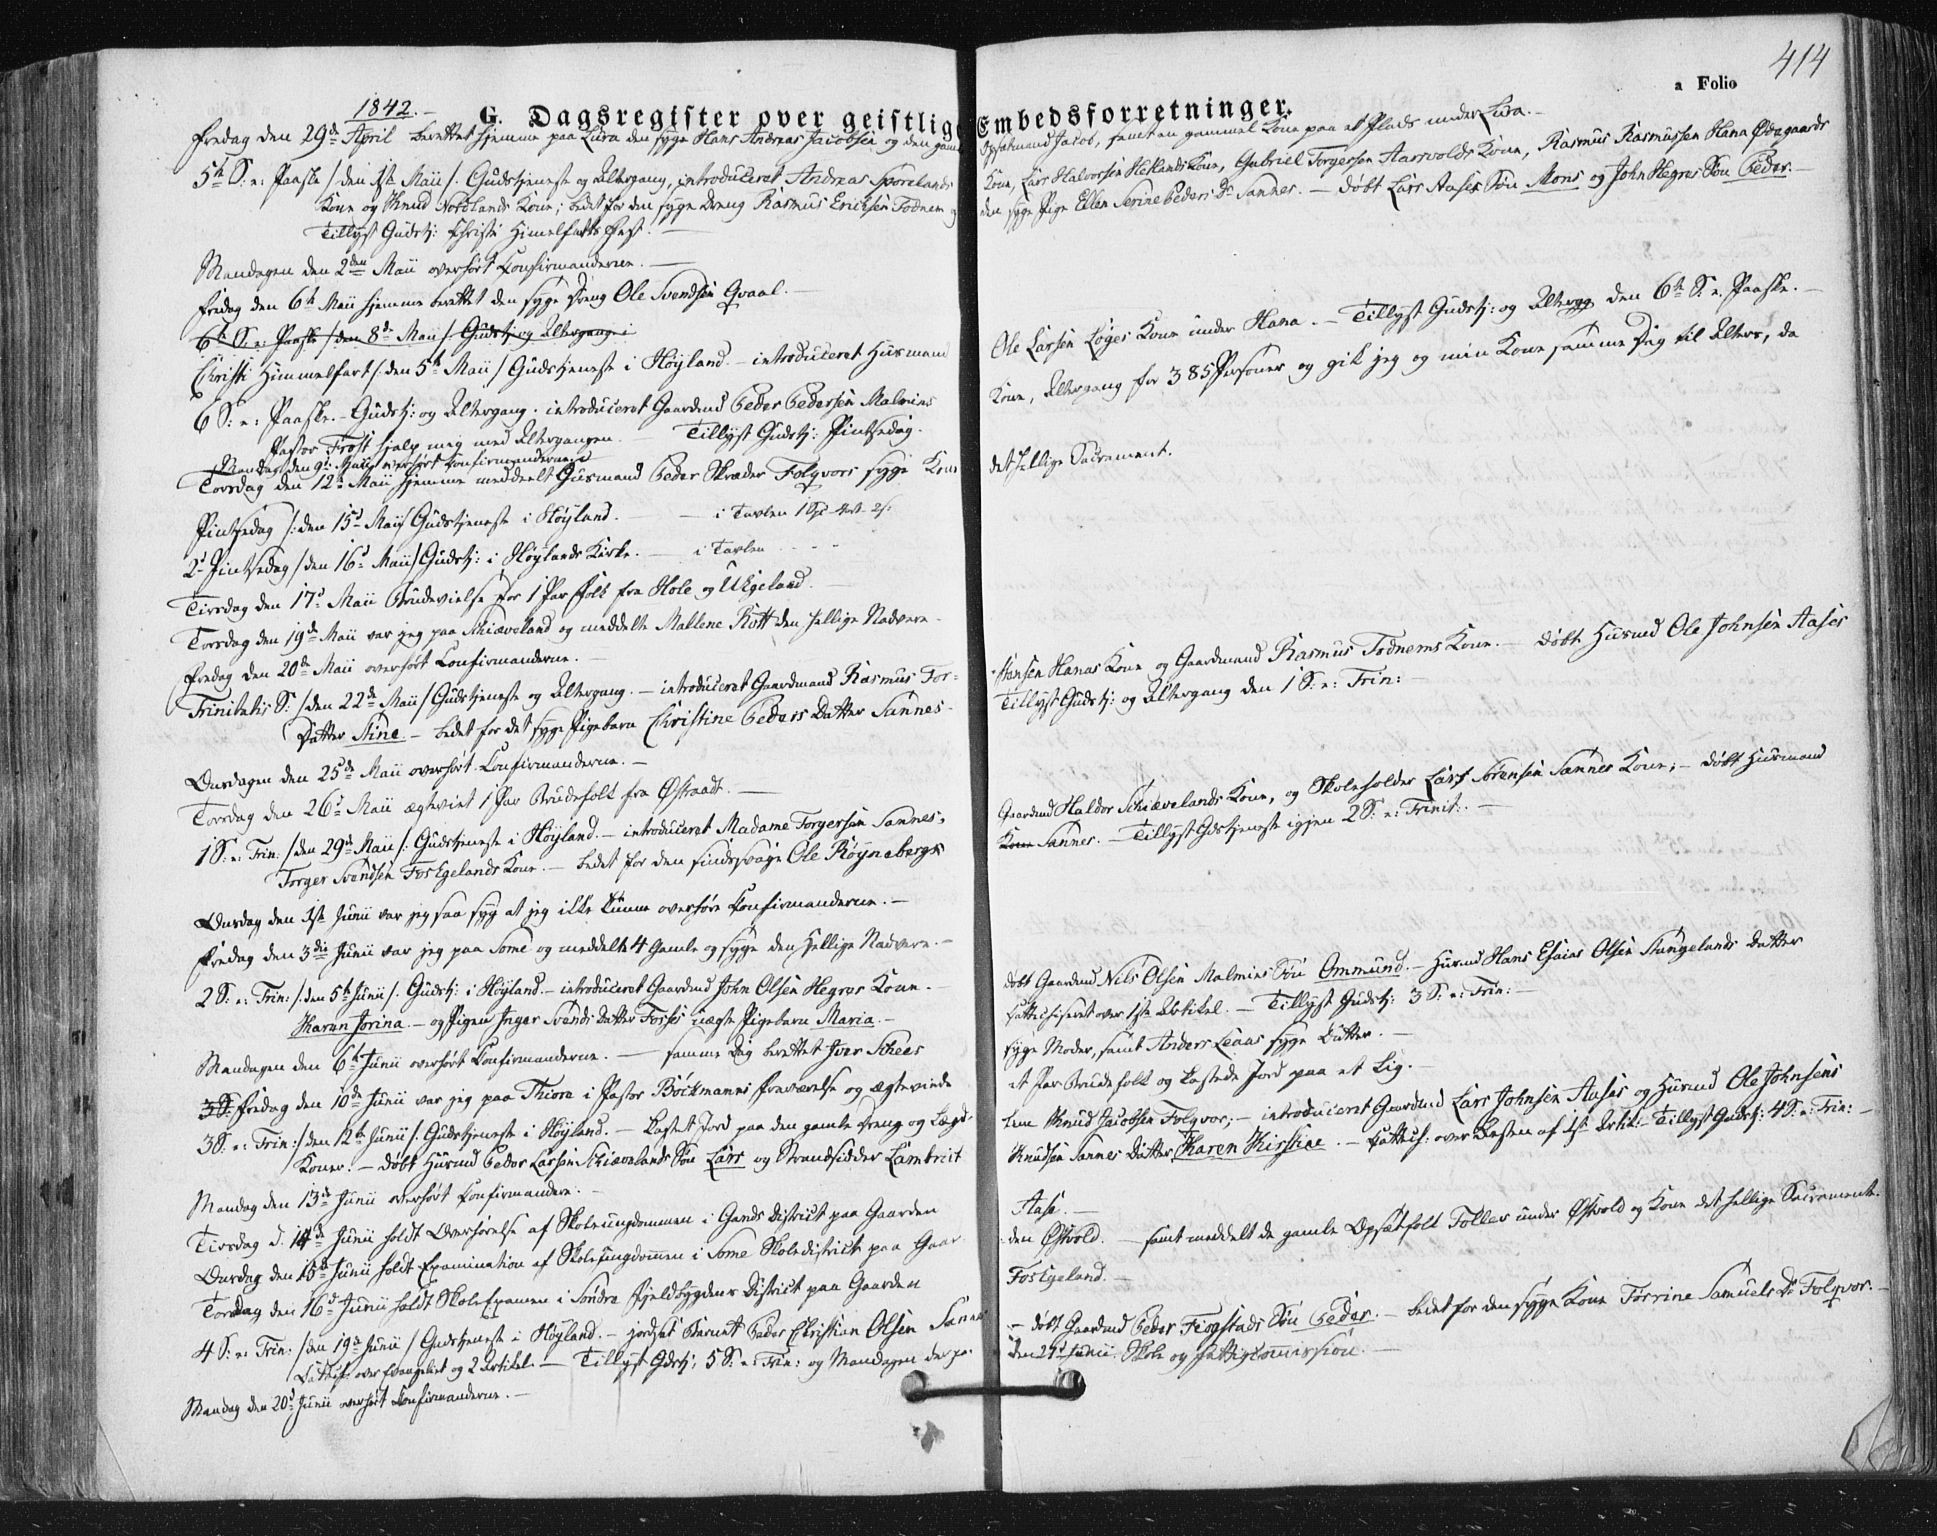 414
a Folio
1842.-
G. Dagsregister over geistlige Embedsforretninger.
Fredag den 29de April berettet hjemme paa Lura den syge Hans Andreas Jacobsen og den gamle Opsatmand Jacob, samt en gammel Kone paa et Plads under Lura.-
5te S: e: Paaske /: den 1ste Maii /: Gudstjeneste og Altergang, introduceret Andreas Sporelands Kone, Lars Halvorsen Hetlands Kone, Gabriel Torgersen Aarvolds Kone, Rasmus Rasmussen Hana Ødegaards
Kone og Knud Nordlands Kone; bedet for den syge Dreng Rasmus Ericksen Todnem og den syge Pige Ellen Serine Peders Dr Sannes. - døbt Lars Aases Søn Mons og John Hegres Søn Peder. -
Tillyst Gudstj: Christi Himelfarts Fest. -
Mandagen den 2den Maii overhørt Confirmanderne. -
Fredag den 6te Maii hjemme berettet den syge Dreng Ole Svendsen Qvaal. - Ole Larsen Løges Kone under Hana. - Tillyst Gudstj: og Altergg den 6te S. e. Paaske. -
6te S. e: Paaske /: den 8de Maii /: Gudstj: og Altergang:
Christi Himmelfart /: den 5te Maii / Gudstjeneste i Høyland - introduceret Husmand Kone, Altergang for 385 Personer og gik jeg og min Kone samme Dag til Alters, da
6 S: e: Paaske. - Gudstj: og Altergang. introduceret Gaardmd Peder Pedersen Malmins
Pastor Frost hjalp meg med Altergangen. - Tillyst Gudstj: Pintsedag.
Mandag den 9de Maii overhørt Confirmanderne.
Torsdag den 12te Maii hjemme meddeelt Husmand Peder Skræder Folqvors syge Kone det hellige Sacrament.
Pintsedag /: den 15d Maii / Gudstjeneste i Høyland. - i Tavlen 1 Spd
2d Pintsedag / den 16d Maii / Gudstj: i Høylands Kirke. - i Tavlen
Tirsdag den 17d Maii Brudevielse for 1 Par Folk fra Hole og Uigeland. -
Torsdag den 19de Maii var jeg paa Schiæveland og meddelte Mallene Rott den hellige Nadvere.
Fredag den 20de Maii overhørt Confirmanderne. -
Trinitatis S: / den 22de Maii / Gudstjeneste og Altergang. - introduceret Gaardmand Rasmus Tor= Hansen Hanas Kone og Gaardmand Rasmus Todnems Kone. - døbt Husmd Ole Johnsen Aases
Datter Stine. - bedet for det syge Pigebarn Christine Peders Datter Sannes - Tillyst Gudstj: og Altergang den 1 S: e: Trin: -
Onsdagen den 25de Maii overhørt Confirmanderne. -
Torsdag den 26d Maii ægteviet 1 Par Brudefolk fra Østraadt. -
1 S: e: Trin: / den 29de Maii /. Gudstjeneste i Høyland. - introduceret Madame Torgersen Sannes, Gaardmd Haldor Schiævelands Kone, og Skoleholder Lars Sørensen Sannes Kone; - døbt Husmand
Torger Svendsen Fosegelands Kone. - bedet for den sindssvage Ole Røynebergs Kone Sannes. - Tillyst Gdstjeneste igjen 2 S: e: Trinit: -
Onsdag den 1ste Junii var jeg saa syg at jeg ikke kunne overhøre Confirmanderne. -
Fredag den 3die Junii var jeg paa Some og meddelte 4 Gamle og syge den hellige Nadvere. -
2 S: e: Trin: /: den 5te Junii /. Gudstj: i Høyland. - introduceret Gaardmd John Olsen Hegres Kone. - døbt Gaardmd Nils Olsen Malmins Søn Ommund. - Husmd Hans Esaias Olsen Stangelands Datter
Karen Jorina - og Pigen Inger Svends Datter Fosses uægte Pigebarn Maria. - Cattechiseret over 1ste Artikel. - Tillyst Gudstj: 3 S: e: Trin: -
Mandagen den 6te Junii overhørt Confirmanderne. - samme Dag berettet Iver Schees syge Moder, samt Anders Leaas syge Datter. -
3 S: Fredag den 10de Junii var jeg paa Thiora i Pastor Bøckmanns fraværelse og ægteviede et Par Brudefolk og kastede Jord paa et Lig. -
3 S: e: Trin: / den 12te Junii /: Gudstjeneste i Høyland. - kastet Jord paa den gamle Dreng og Lægd= lem Knud Jacobsen Folqvor; - introduceret Gaardmd Lars Johnsen Aases og Husmd Ole Johnsens
Koner. - døbt Husmd Peder Larsen Schiævelands Søn Lars og Strandsidder Lambricht Knudsen Sannes Datter Karen Kirstine. - Cattech: over Resten af 1ste Artik: Tillyst Gudstj: 4 S: e: Trin: -
Mandag den 13de Junii overhørt Confirmandere. -
Tirsdag d. 14de Junii holdt Overhørelse af Skoleungdommen i Gands District paa Gaarden Aase. -
Onsdag den 15de Junii holdt Examination af Skoleungdommen i Some Skoledistrict paa Gaarden Østvold. - samt meddelt de gamle Opsætfolk Tollev under Østvold og Kone det hellige Sacramente.
Torsdag den 16d Junii holdt SkoleExamen i Søndre Fjeldbygdens District paa Gaarden Fosegeland. -
4 S: e: Trin: / den 19de Junii / Gudstjeneste i Høyland. - jordet Barnet Peder Christian Olsen Sannes - døbt Gaardmd Peder Figgstads Søn Peder. - bedet for den syge Kone Torrine Samuels Dr Folqvor. -
Cattech: over Evangeliet og 2 Artikel. - Tillyst Gdstj: 5 S: e: Trin: og Mandagen derpaa den 27d Junii Skole og Fattigcommission. -
Mandag den 20d Junii overhørt Confirmanderne. -